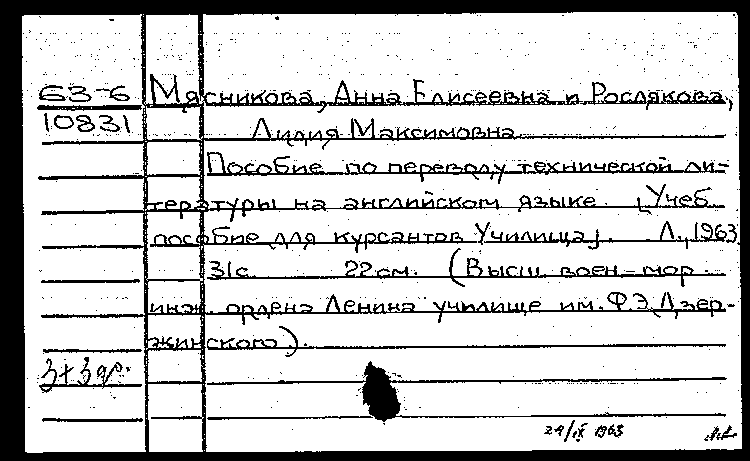 63-6
10831
Мясникова, Анна Елисеевна и Рослякова,
Лидия Максимовна
Пособие по переводу технической ли-
тературы на английском языке. [Учеб.
пособие для курсантов Училища]. Л., 1963
31с. 22см. (Высш. воен.-мор.
инж. ордена Ленина училище им. Ф.Э.Дзер-
жинского).
29/IX 1963